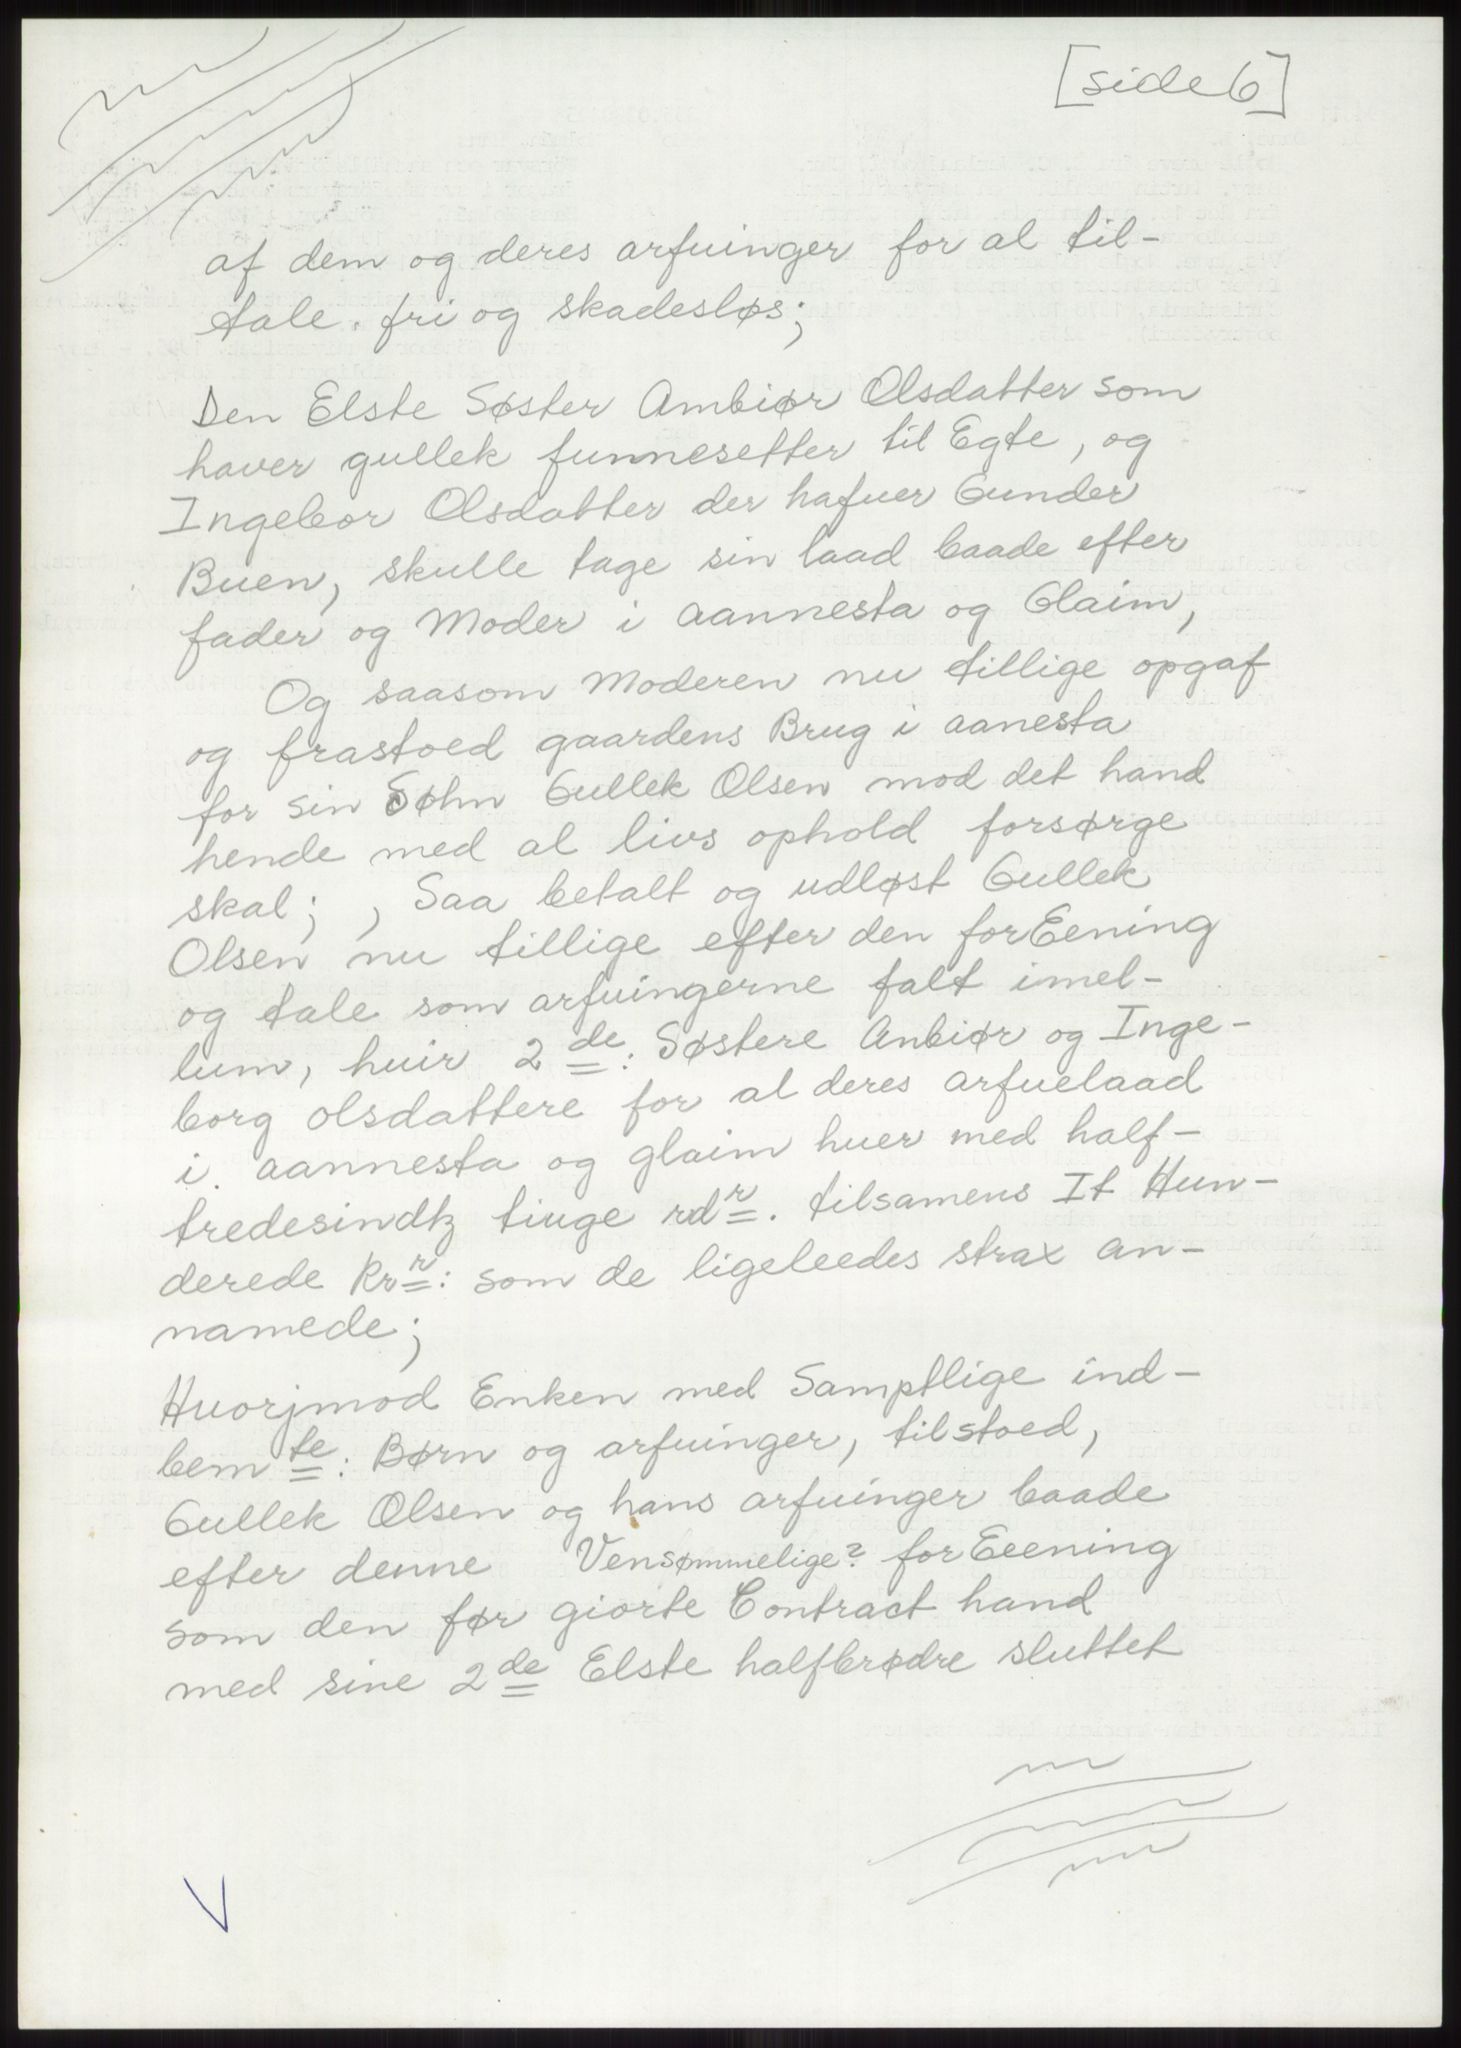 [side 6]
af dem og deres arfuinger for al til-
tale. fri og skadesløs;
Den Elste Søster Ambiør Olsdatter som
haver gullek funnesetter til Egte, og
Ingebor Olsdatter der hafuer Gunder
Buen, skulle tage sin laad baade efter
fader og Moder i aannesta og Glaim,
Og saasom Moderen nu tillige opgaf
og frastoed gaardens Brug i aanesta
for sin Søhn Gullek Olsen mod det hand
hende med al livs ophold forsørge
skal; , Saa betalt og udløst Gullek
Olsen nu tillige efter den forEening
og tale som arfuingerne falt imel-
lum, huir 2de: Søstere Anbiør og Inge-
borg olsdattere for al deres arfuelaad
i. aannesta og glaim huer med half-
tredesindtz tiuge rdr. tilsamens It Hun-
derede Rrr: som de ligeleedes strax an-
namede;
Huorjmod Enken med Samptlige ind-
bemte: Børn og arfuinger, tilstoed,
Gullek Olsen og hans arfuinger baade
efter denne Vensømmelige? forEeening
som den før giorte Contract hand
med sine 2de Elste halfbrødre sluttet
V